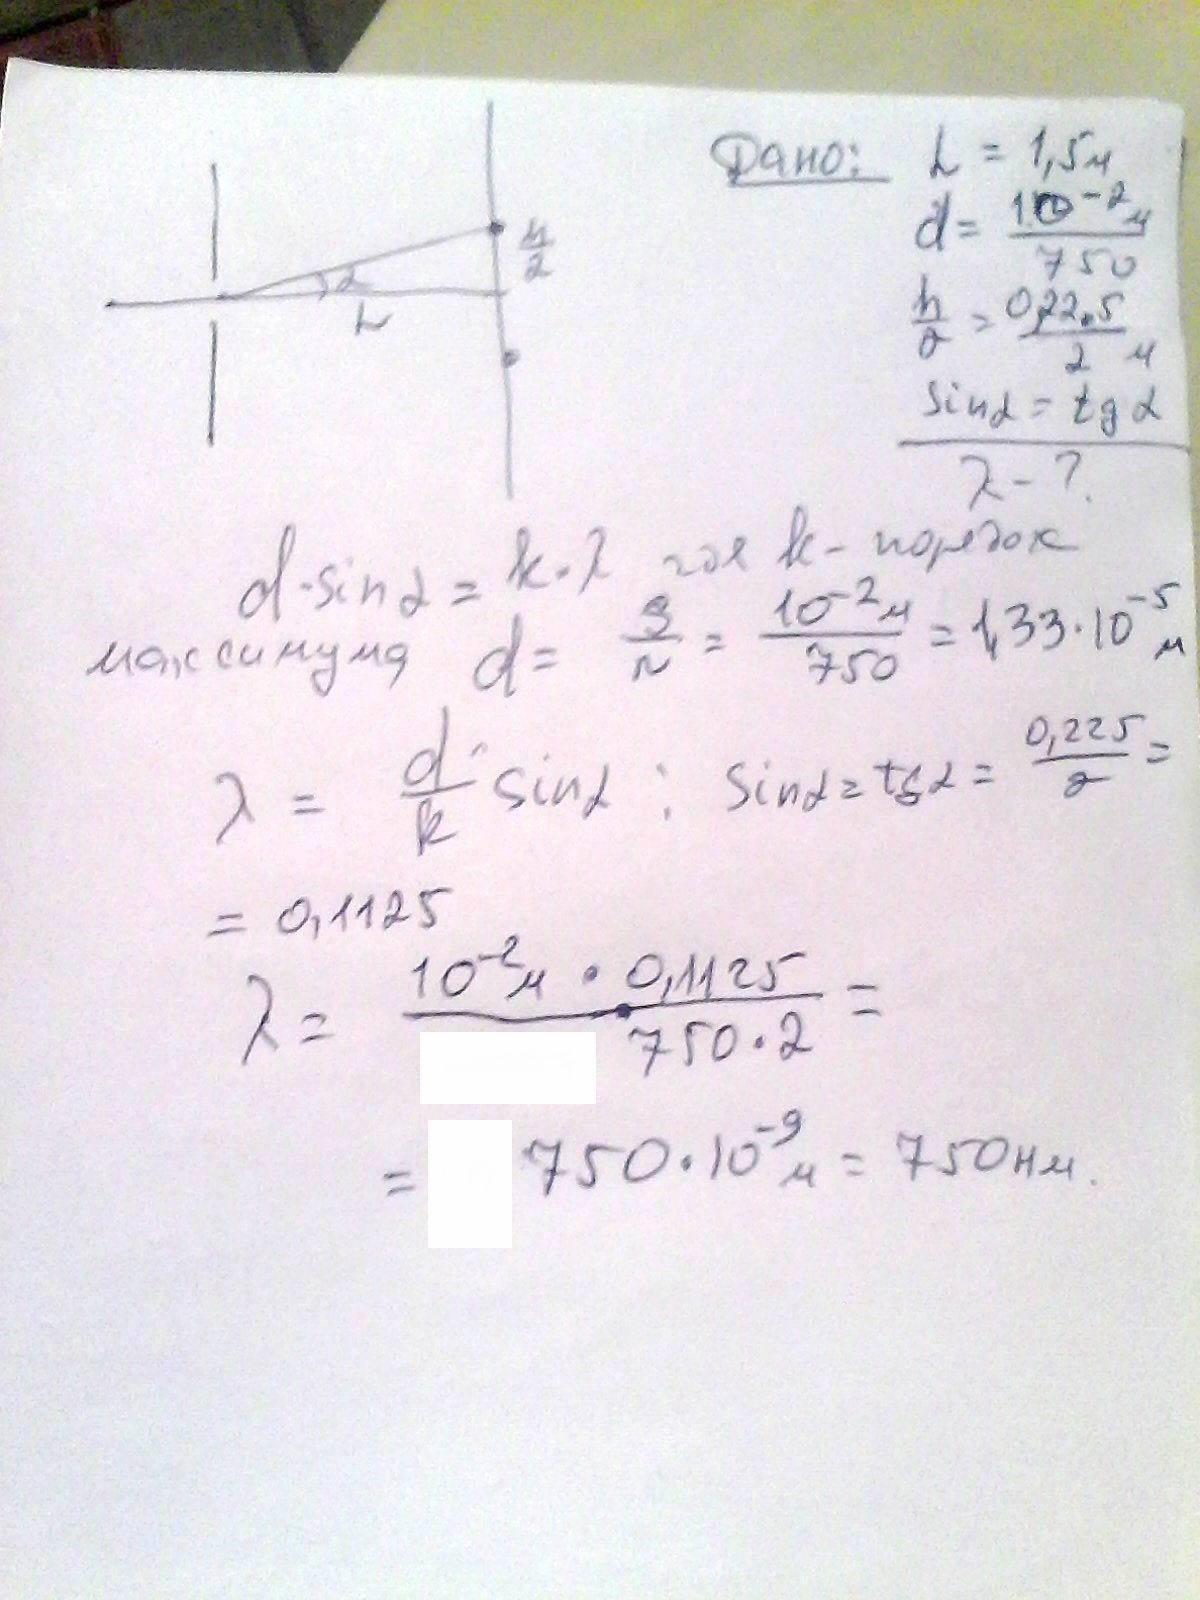 Дано: L = 1,5м
d = 1.10⁻² м / 750
h/2 = 0,22.5 / 2 м
sinα = tgα
λ - ?
h/2
α
L
d·sinα = k·λ где k - порядок
максимума d = S/N = 10⁻²м / 750 = 1,33·10⁻⁵ м
λ = d/k · sinα ; sinα = tgα = 0,225 / 2 =
= 0,1125
λ = 10⁻²м · 0,1125 / 750·2 =
= 750·10⁻⁹ м = 750нм.